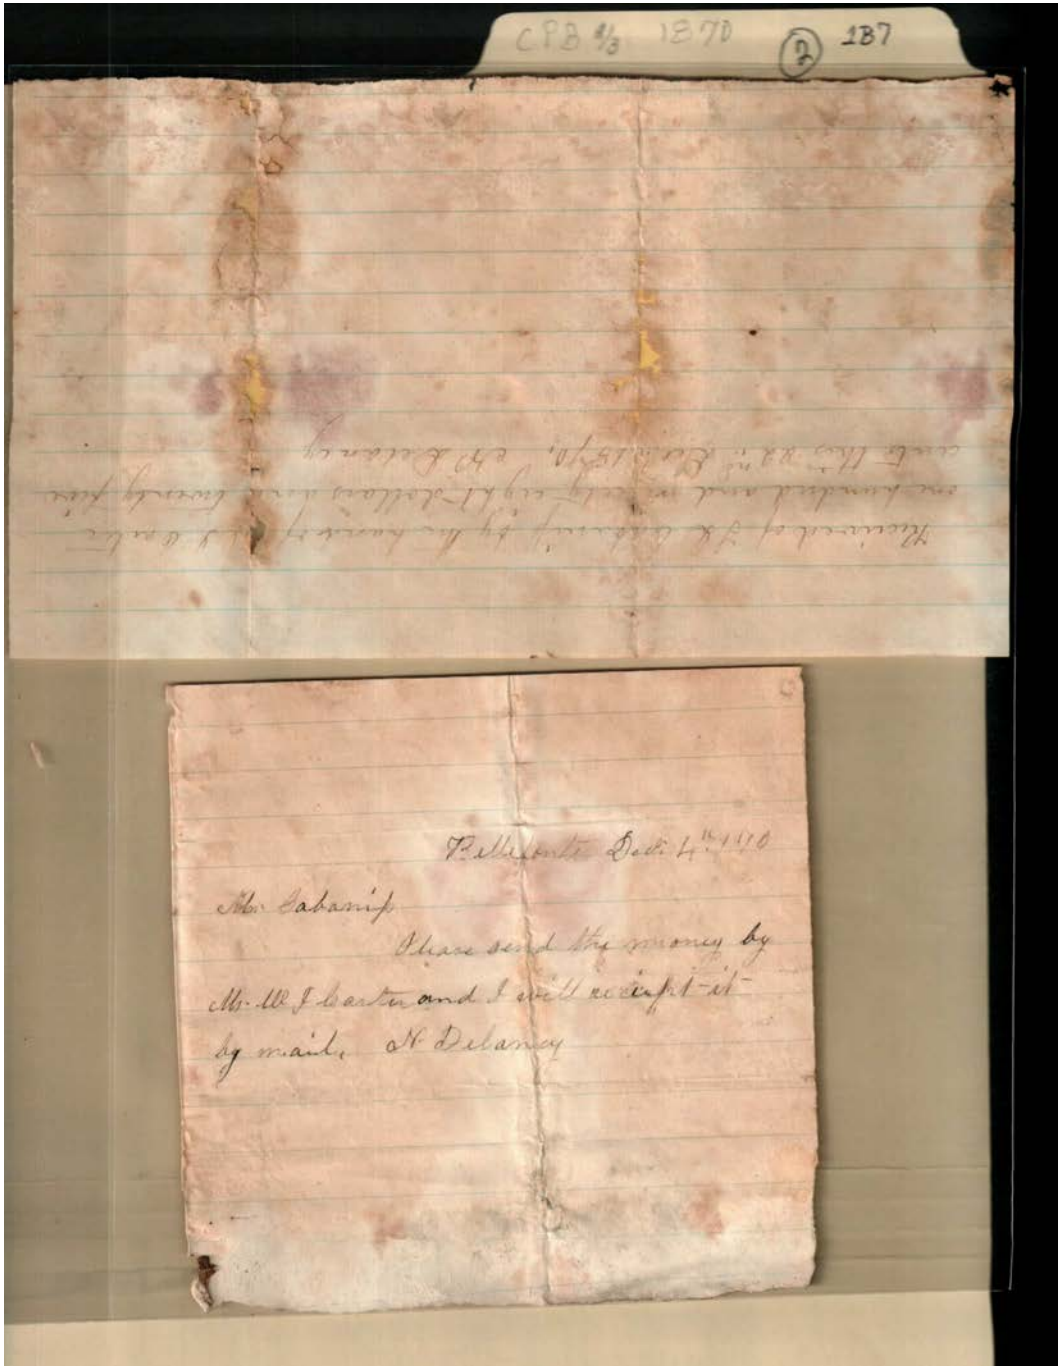 CPB 2/3 1870 (2) 1B7
Received of by the hands of W J Carter
one hundred and ninety eight dollars and twenty five
cents this 22nd 1870. N Delaney
Bellefonte Dec. 4th 1870
Mr. Cabanip
Please send the money by
Mr. W J Carter and I will receipt it
by mail. N Delaney